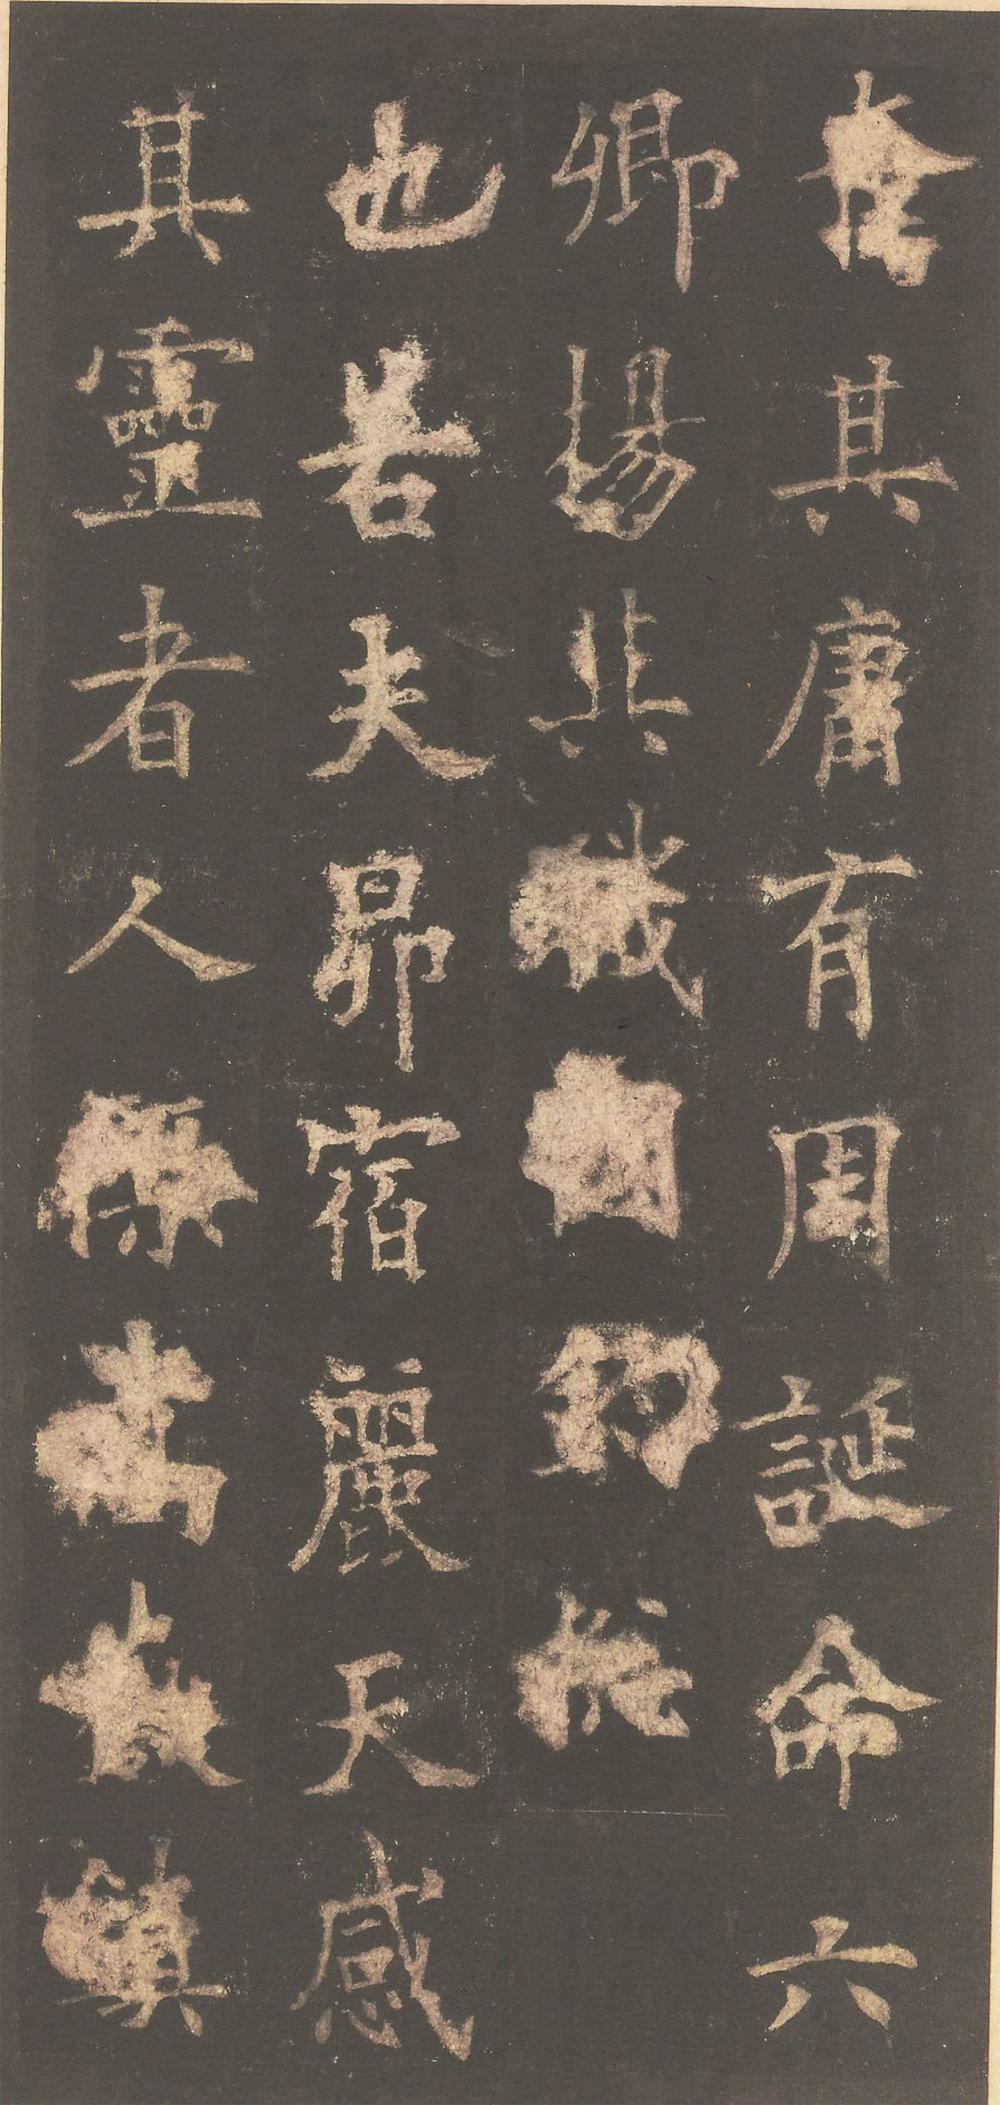 其庸有周誕命六
卿揚其職
也若夫昴宿麗天感
其靈者人傑嵩鎮